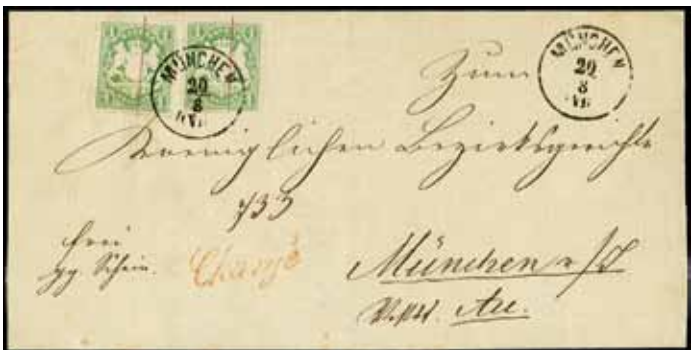 1 1 1 1
MÜNCHEN
20
8
MÜNCHEN
20
8
Zum
Koeniglichen Bezirksgerichte
733
frei
gg Schein.
Chargé
München
Au.